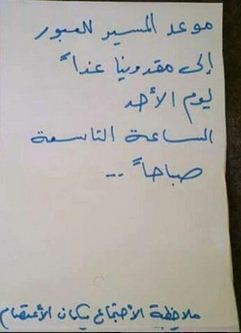 موعد المسير للعبور
إلى مقدونيا غداً
يوم الأحد
الساعة التاسعة
صباحاً ..
ملاحظة الأجتماع بمكان الأعتصام